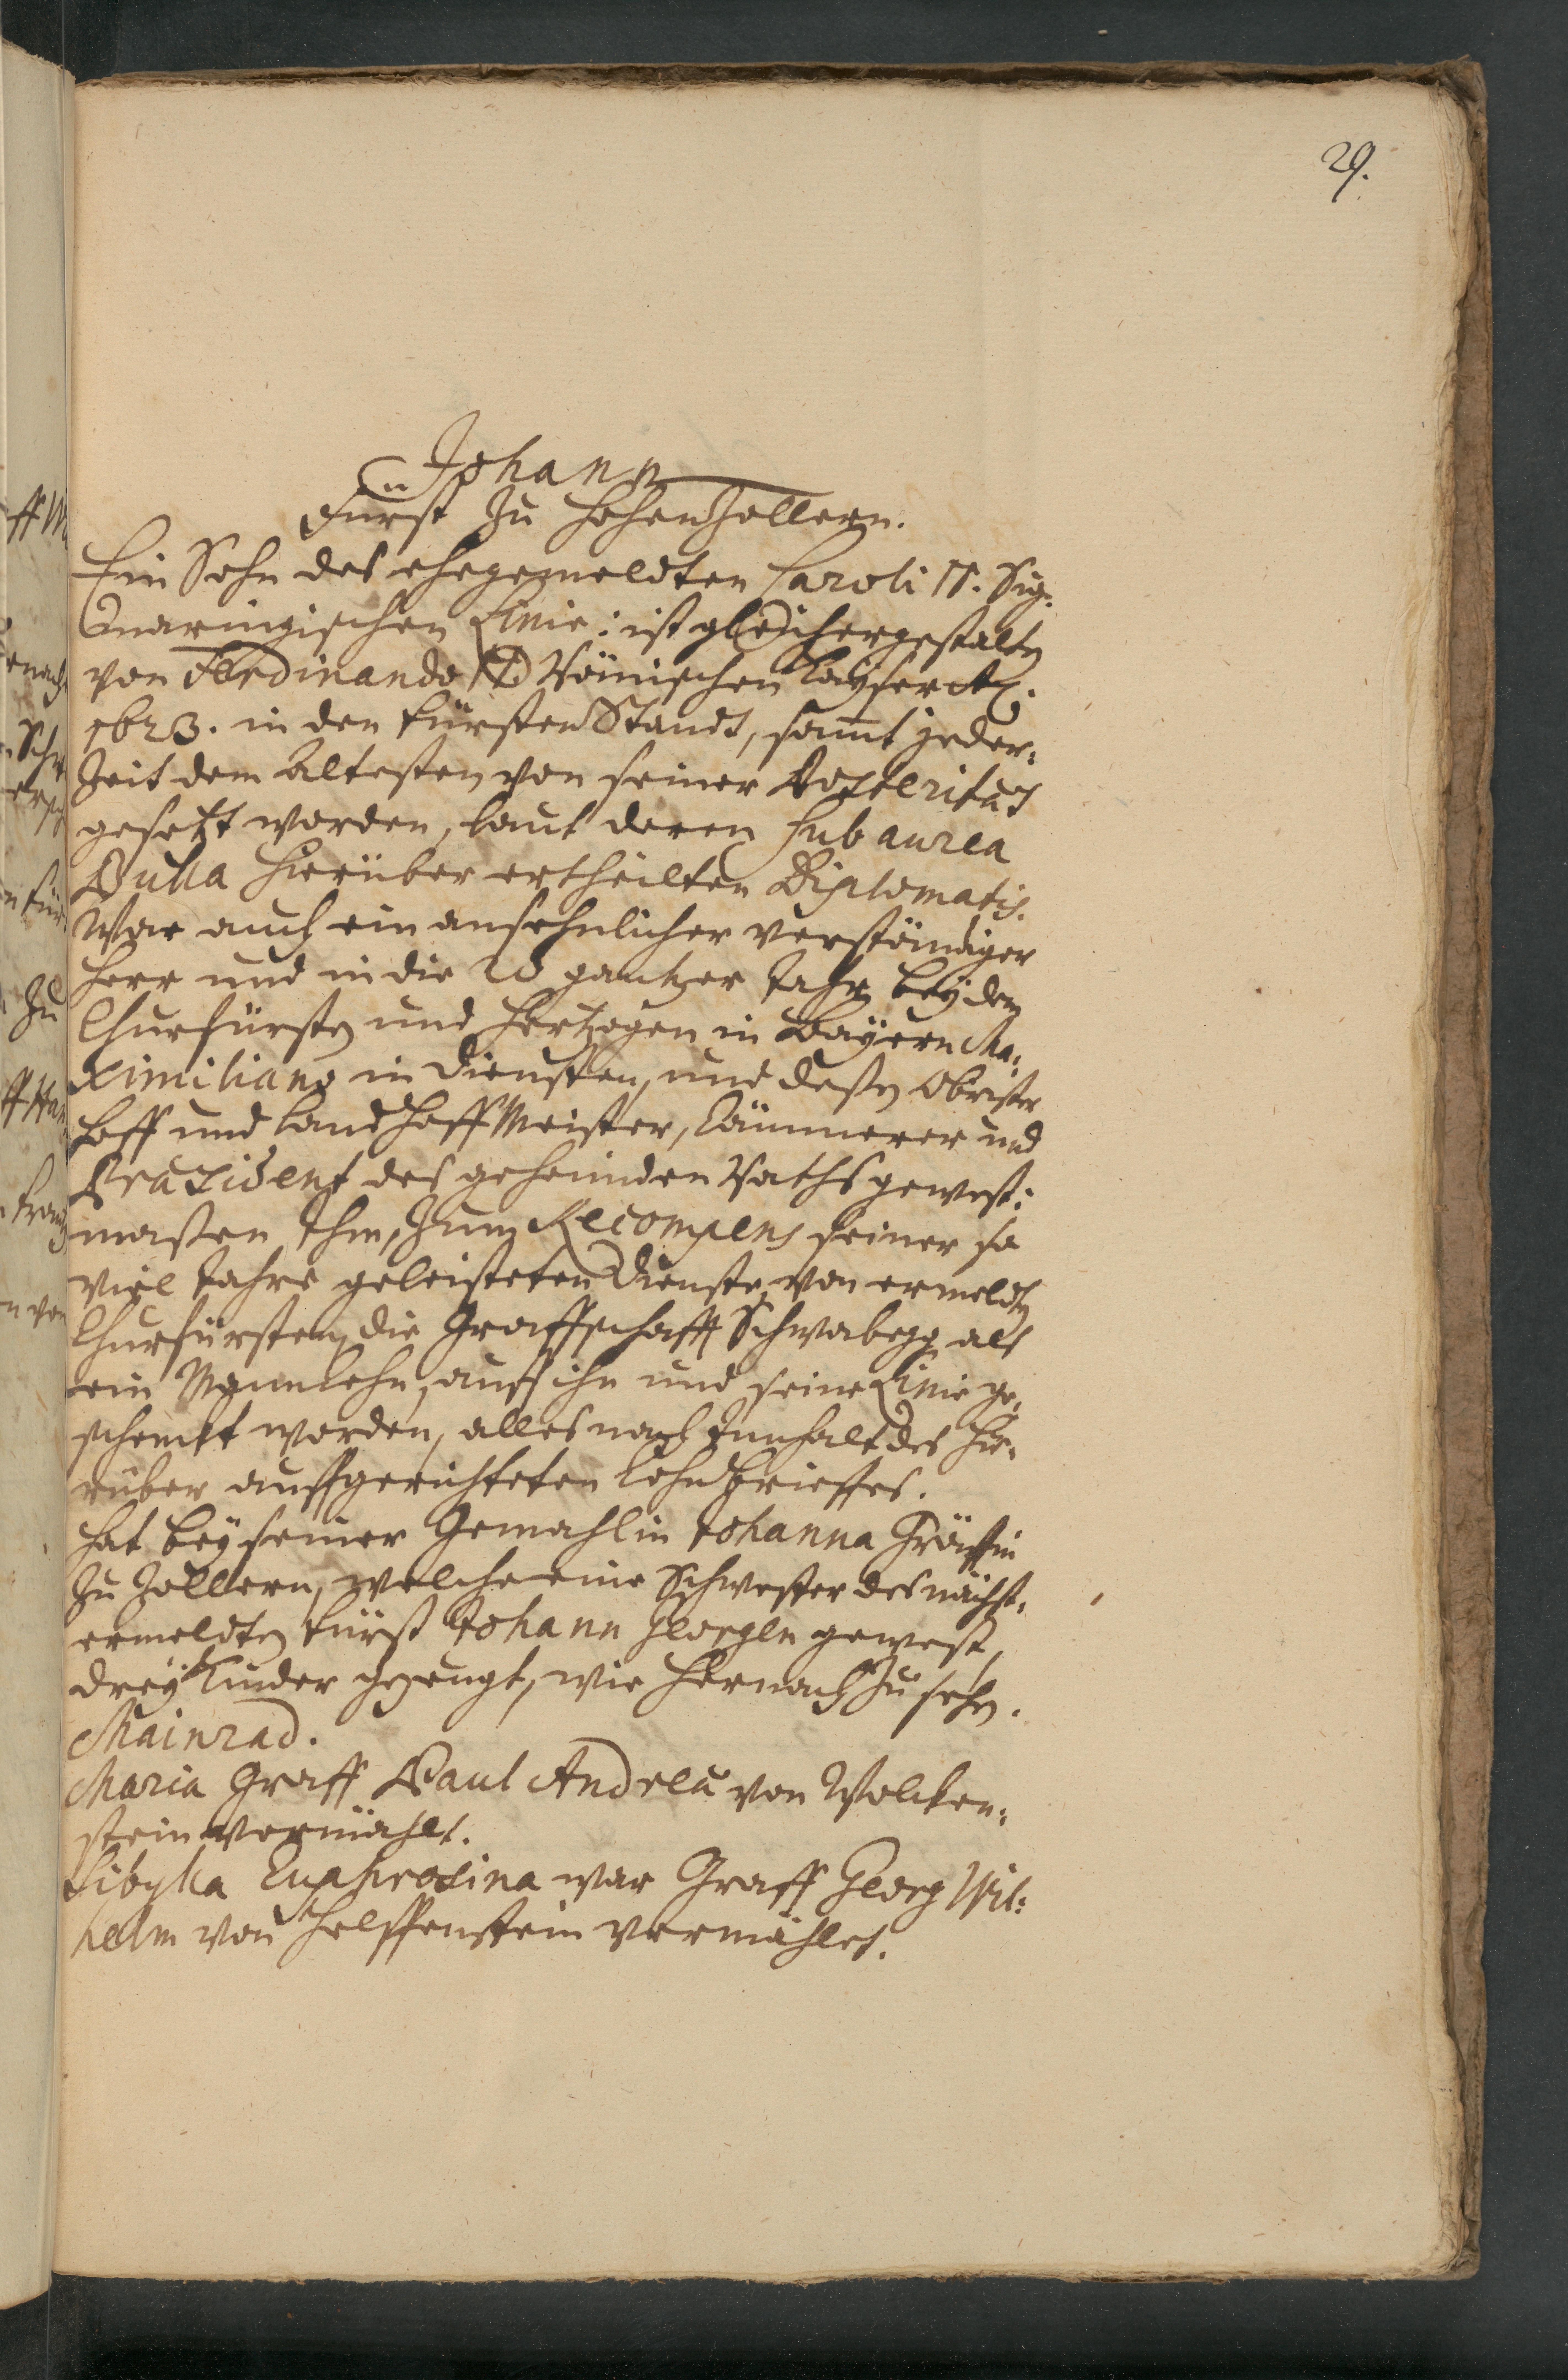 29.
Johann
Fürst Zu HohenZollern.
Ein Sohn des ehegemeldten Caroli II. Sig=
maringischen Linie: ist gleichergestalt
von Ferdinando II Römischen Kayser Aō.
1623. in den FürstenStandt, samt jeder=
Zeit dem Altesten von seiner Posteritæt
gesetzt worden, laut deren sub aurea
Bulla hierüber ertheilten Diplomatis.
War auch ein ansehnlicher verständiger
Herr und in die 20 gantzer Jahr beÿ dem
Churfürsten und Hertzogen in Baÿern Ma=
ximiliano in Diensten, und deßen Obrister
Hoff und LandHoffMeister, Cämmerer und
Præsident des geheimden Raths gewest:
maßen Ihm, Zum Recompens seiner so
viel Jahre geleisteten Dienste, von ermeldten
Churfürsten, die Graffschafft Schwabegg als
ein Mannlehn, auff ihn und seine Linie ge=
schenckt worden, alles nach Innhalt des hie=
rüber auffgerichteten Lehnbrieffes.
Hat beÿ seiner Gemahlin Johanna Gräffin
Zu Zollern, welche eine Schwester des nächst=
ermeldten Fürst Johann Georgen gewest,
dreÿ Kinder gezeugt, wie hernach Zu sehen.
Mainrad.
Maria Graff Paul Andreæ von Wolcken=
stein vermählt.
Sibylla Euphrosina war Graff Georg Wil=
helm von Helffenstein vermählet.